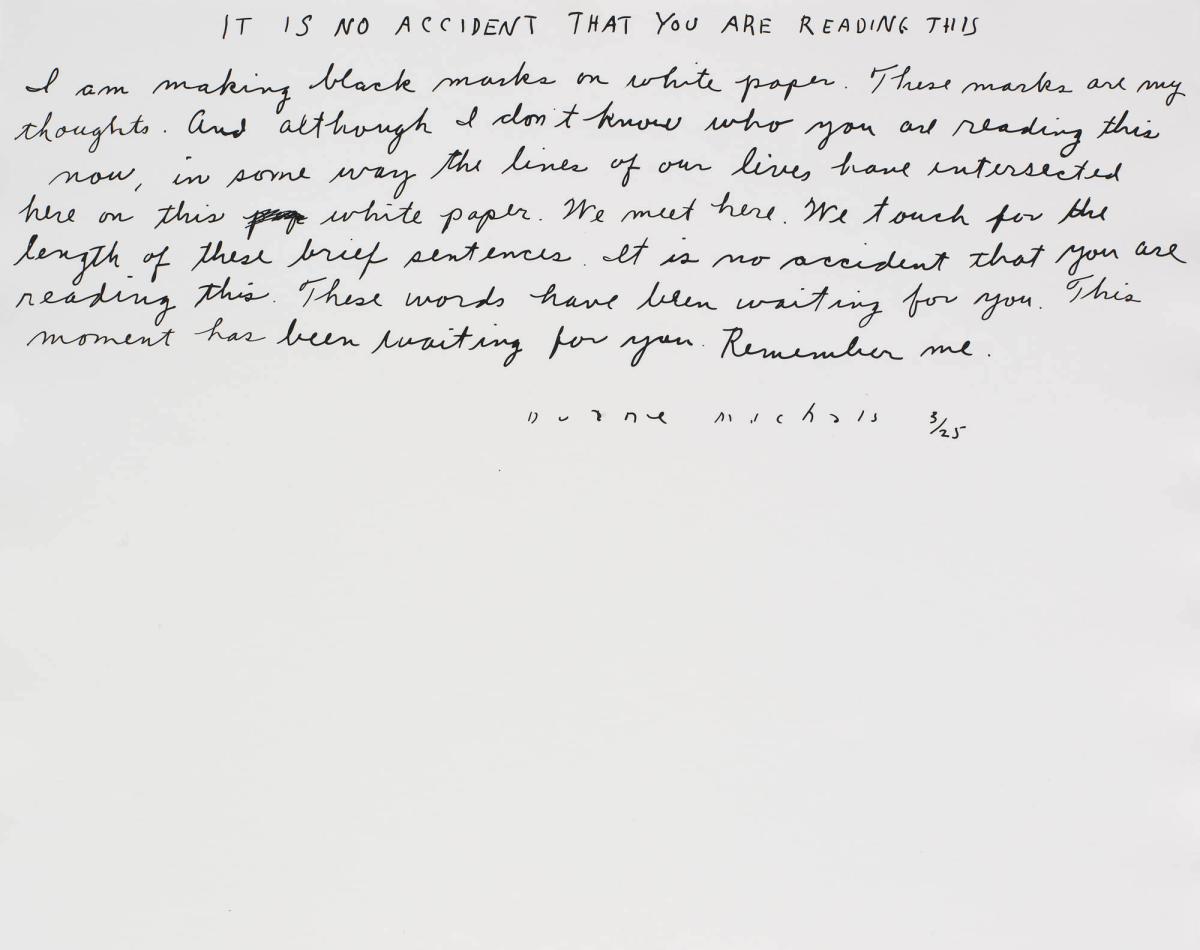 IT IS NO ACCIDENT THAT YOU ARE READING THIS
I am making black marks on white paper. These marks are my
thoughts. And although I don't know who you are reading this
now, in some way the lines of our lives have intersected
here on this white paper. We meet here. We touch for the
length of these brief sentences. It is no accident that you are
reading this. These words have been waiting for you. This
moment has been waiting for you. Remember me.
Duane Michals 3/25